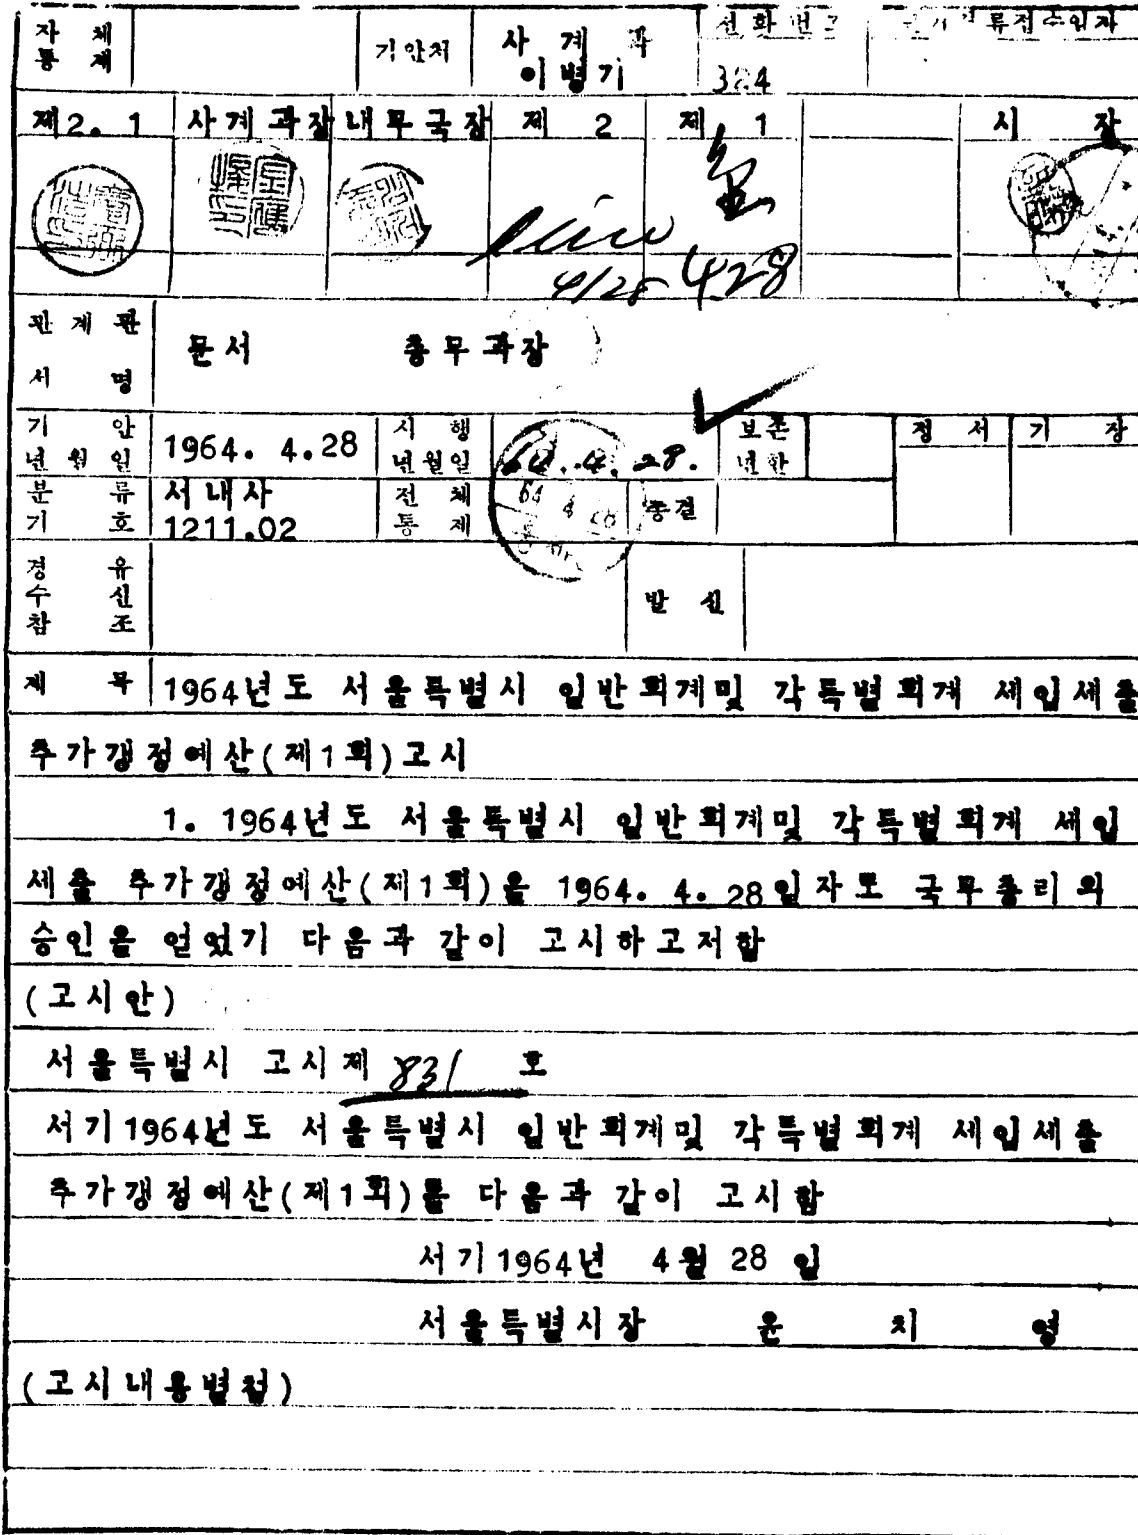 자 체 통 제 기안처 사 계 과 이병기 전화번호 324 류접수일자
제2. 1 사계과장 내무국장 제 2 제 1 시 장
4/28 428
관계관
서 명 문서 총무과장
기 안 년월일 1964. 4.28 시 행 년월일 64. 4. 28. 보존 년한 정 서 기 장
분 류 기 호 서내사 1211.02 전 체 통 제 64 4 28 종결
경 유
수 신
참 조 발 신
제 목 1964년도 서울특별시 일반회계및 각특별회계 세입세출
추가갱정예산(제1회)고시
1. 1964년도 서울특별시 일반회계및 각특별회계 세입
세출 추가갱정예산(제1회)을 1964. 4. 28일자로 국무총리의
승인을 얻었기 다음과 같이 고시하고저함
(고시안)
서울특별시 고시제 831 호
서기1964년도 서울특별시 일반회계및 각특별회계 세입세출
추가갱정예산(제1회)를 다음과 같이 고시함
서기1964년 4월 28 일
서울특별시장 윤 치 영
(고시내용별첨)